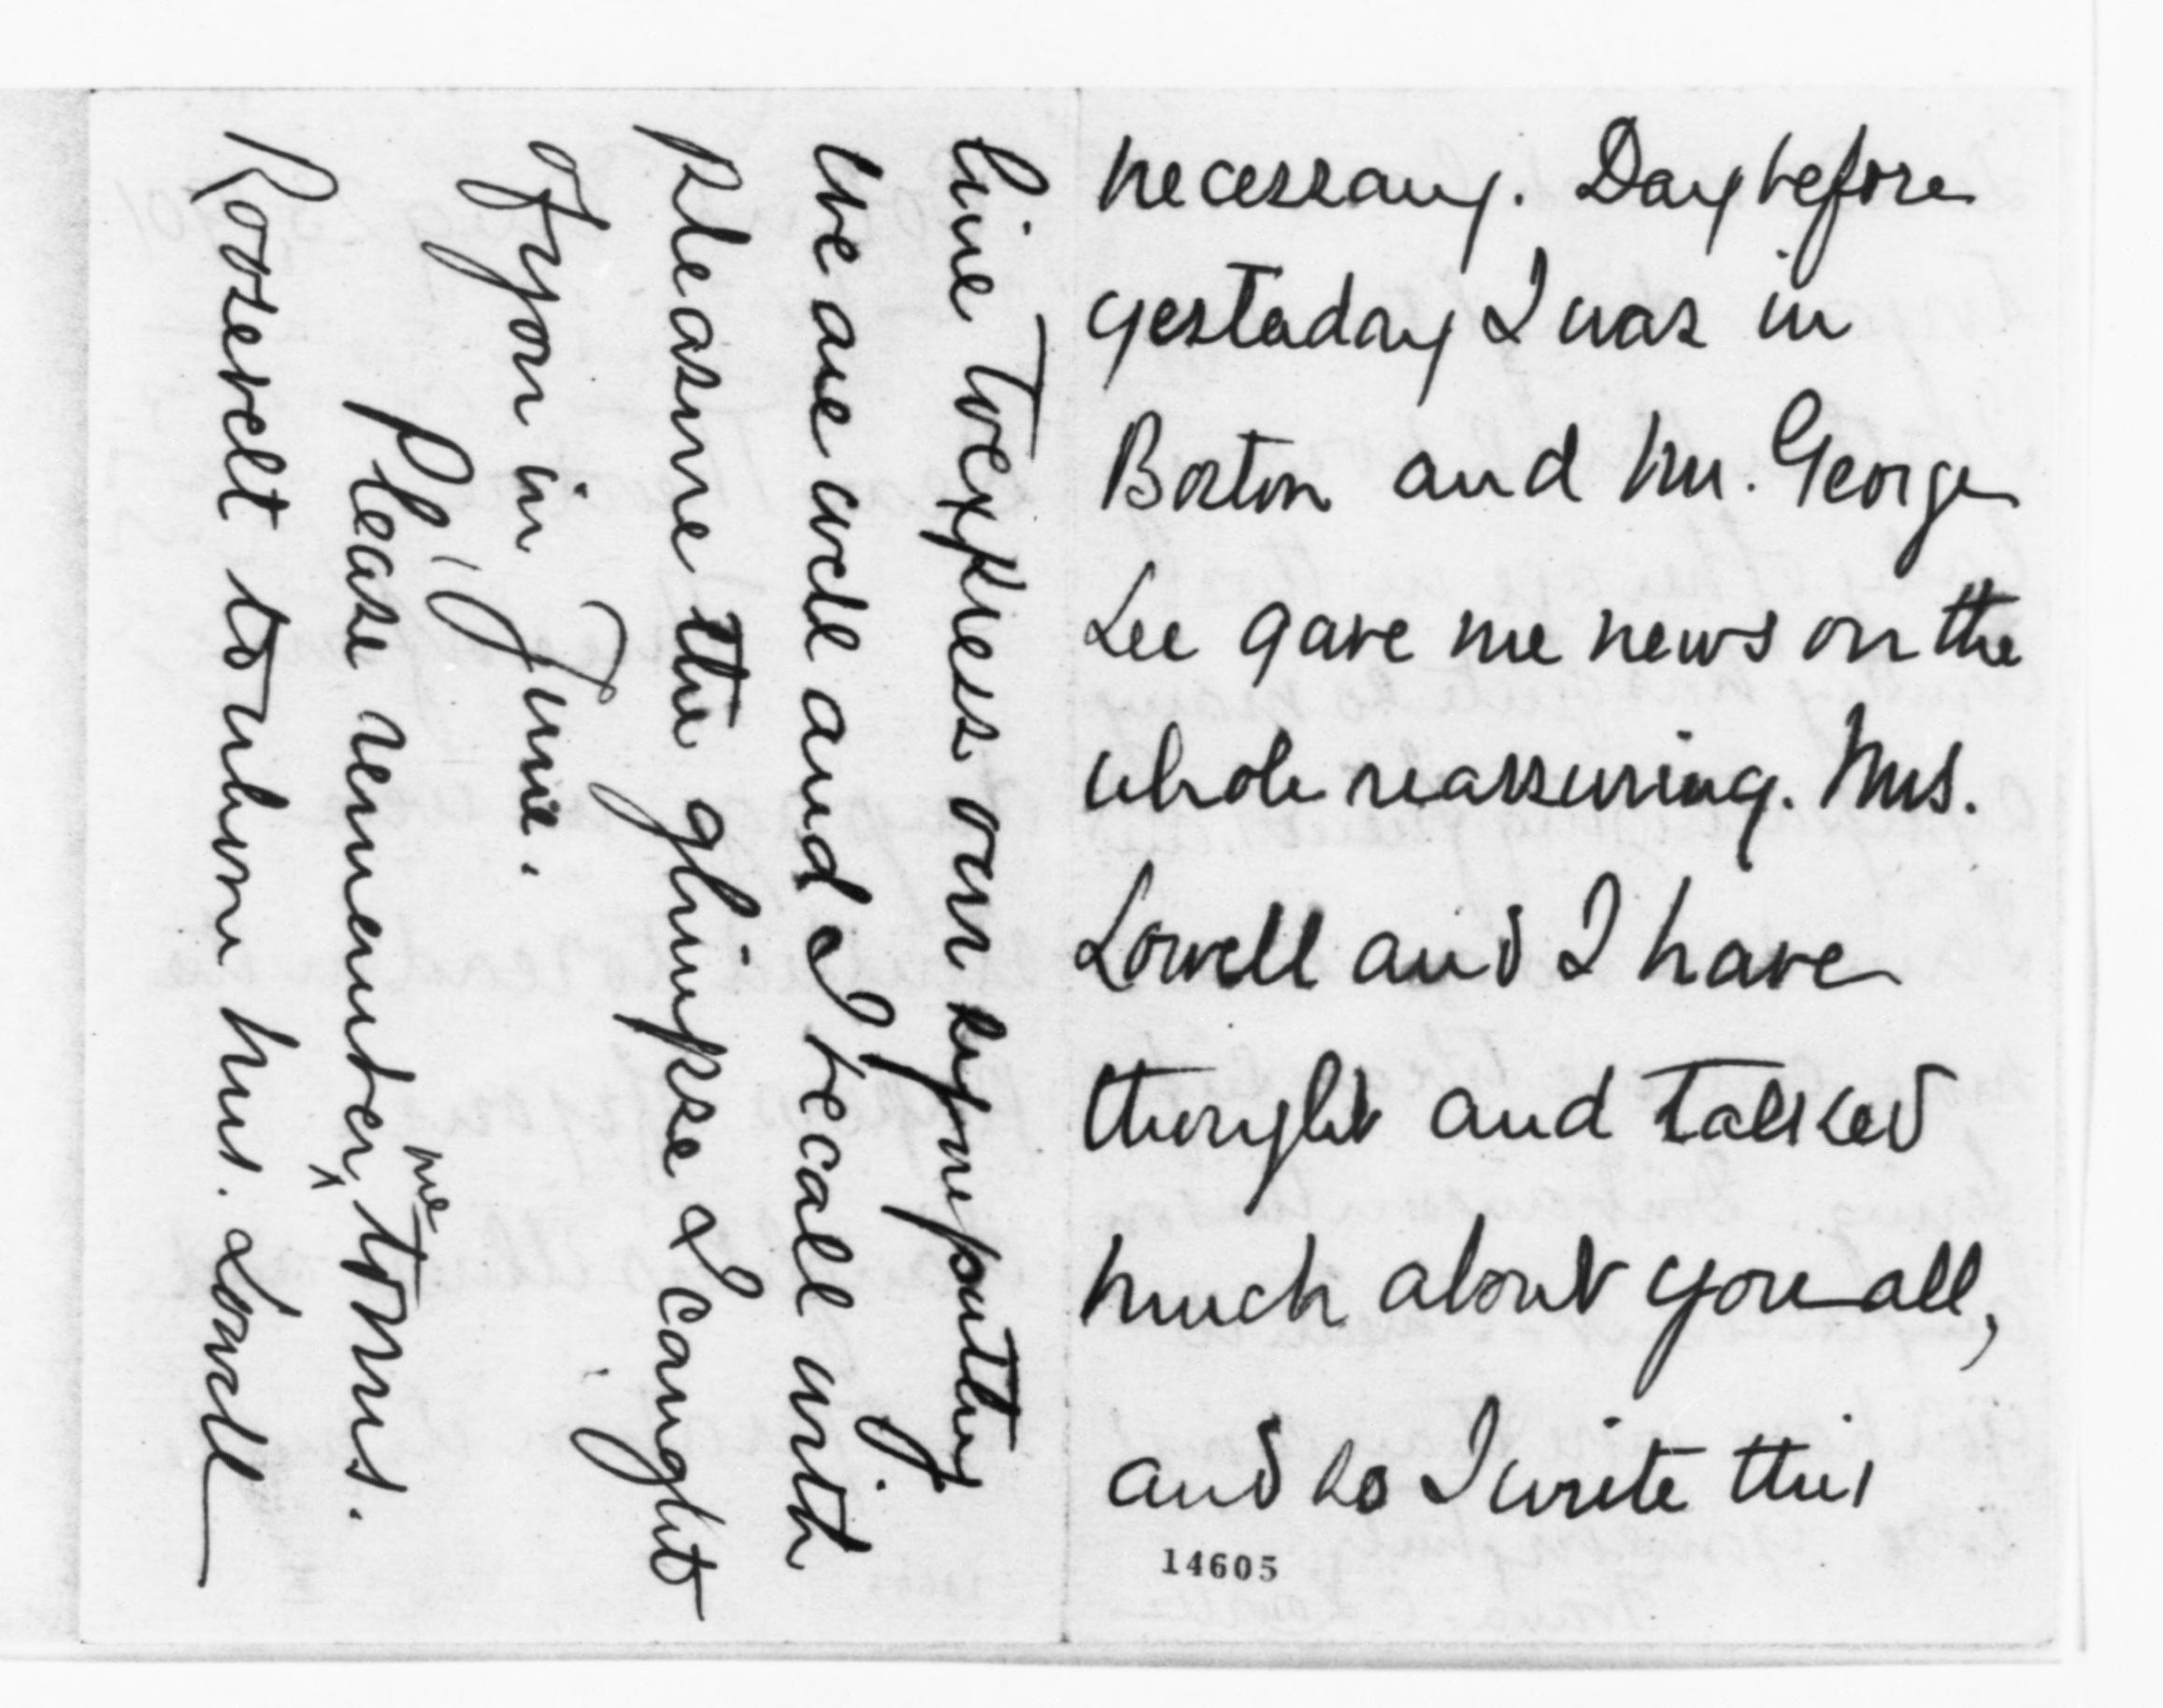 necessary. Day before
yesterday I was in
Boston and Mr. George
Lee gave me news on the
whole reassuring. Mrs.
Lowell and I have
thought and talked
much about you all,
and so I write this
14605
line to express our sympathy
We are well and I recall with
pleasure the glimpse I caught
of you in June.
Please remember me to Mrs.
Roosevelt to whom Mrs. Lowell